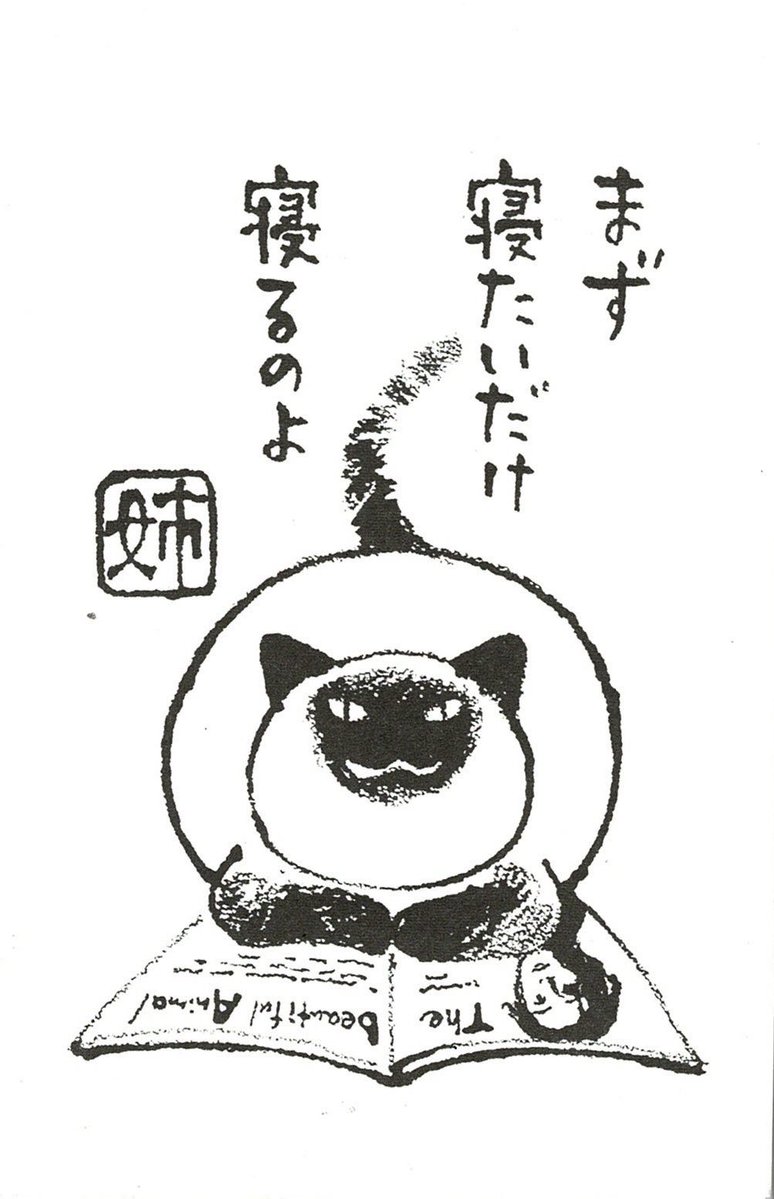 まず
寝たいだけ
寝るのよ
姉
The
Beautiful Animal